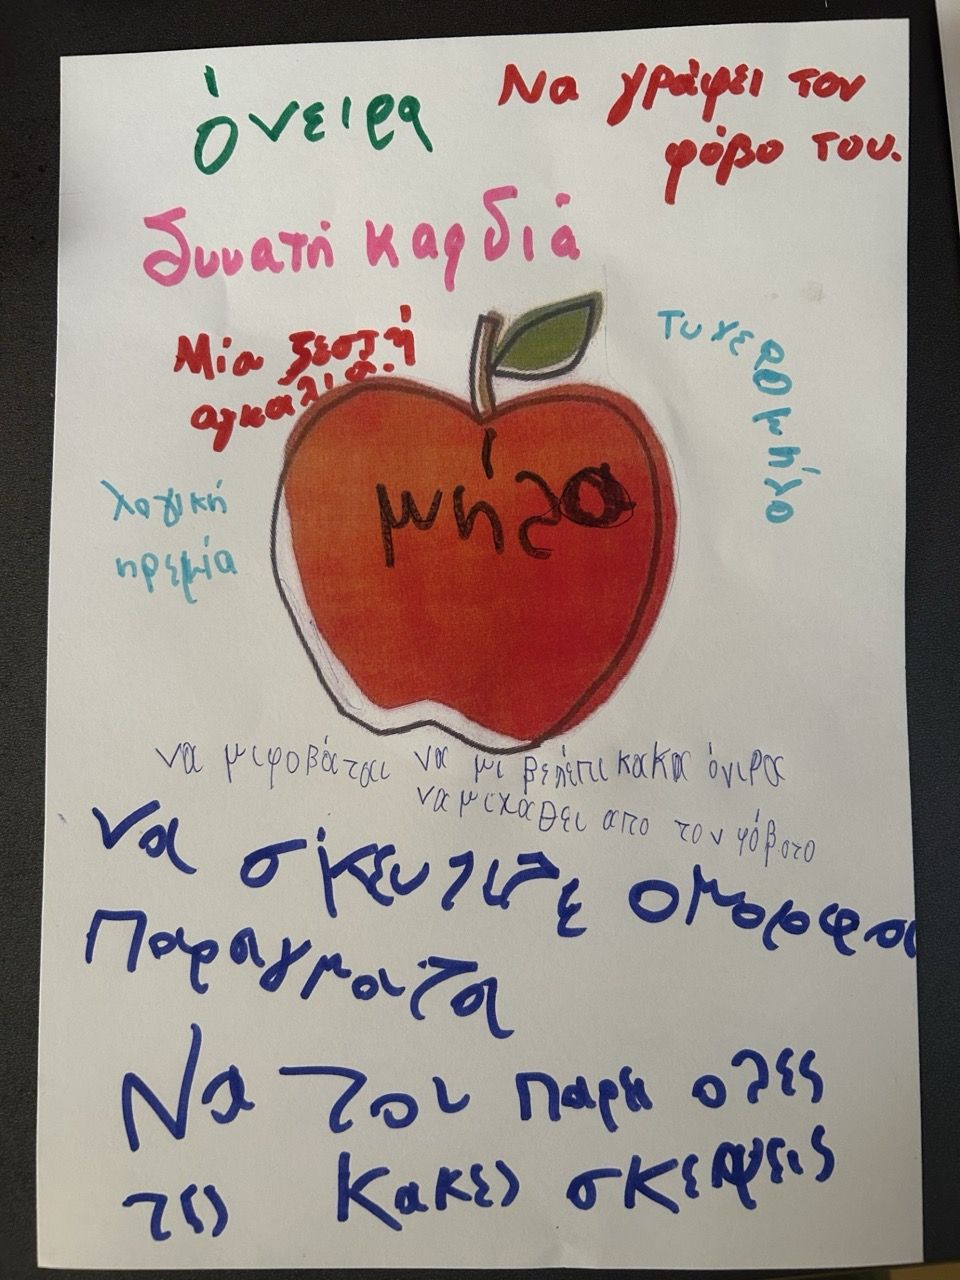 όνειρα
Να γράψει τον
φόβο του.
δυνατή καρδιά
Μία ζεστή
αγκαλιά.
τυχερο μήλο
μήλο
λογική
ηρεμία
να μιφοβάται να μι βελέπι κακα όνιρα
να μι χαθει απο τον φόβοτο
να σκευτιτε ομορφα
Παραγματα
Να του παρε ολες
τες κακες σκεψεις